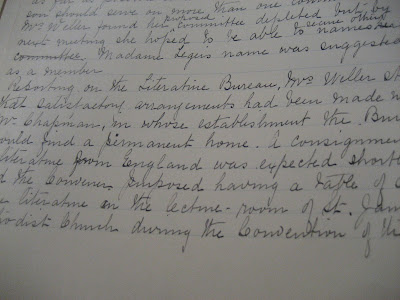 son should serve on more than one
Mrs Weller found her proposed committee depleted but by
next meeting she hoped to be able to secure other names
committee. Madame Legis name was suggested
as a member
Reporting on the Literature Bureau, Mrs Weller st
that satisfactory arrangements had been made w
Mr. Chapman, in whose establishment the Bur
ould find a permanent home. A consignment
literature from England was expected short
d the Convener proposed having a table of
literature in the lecture-room of St. Jam
odist Church during the Convention of